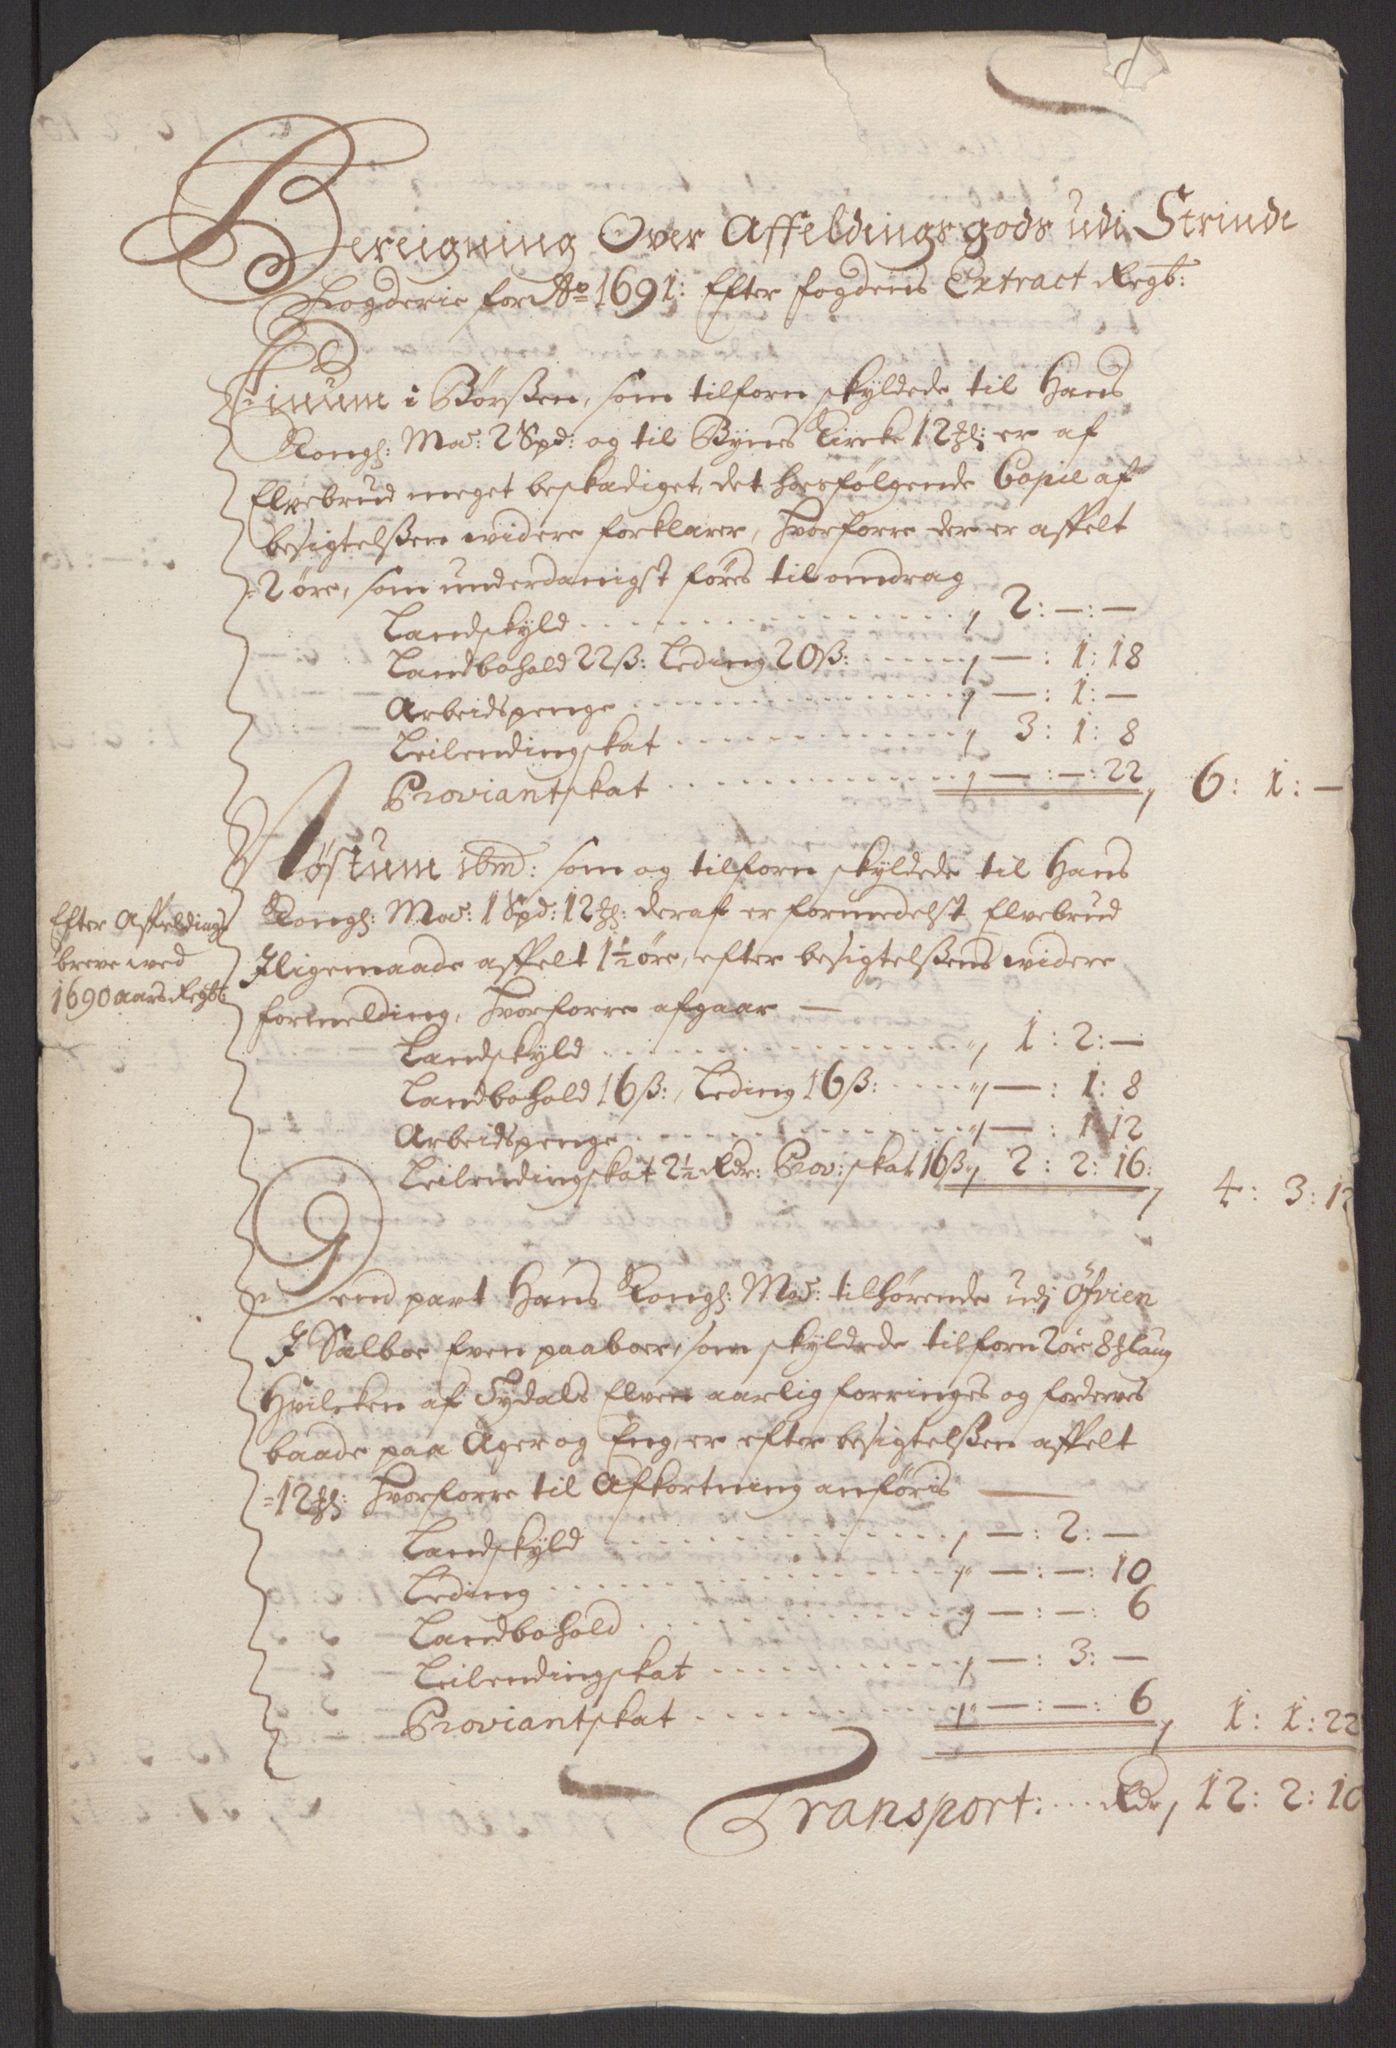 Bereigning Over Affeldings gods udi Strinde
Fogderie for Ao 1691: Efter fogdens Extract Regb:
Einum i Børßen, som tilforn skyldede til Hans
Kongl: Ma: 2 Spd: og til Bynes Kircke 12 ℔: er af
Elvebrud meget beskadiget, det hosfølgende Copie af
besigtelßen widere forklarer, hvorforre der er affelt
2 øre, som underdanigst føres til omdrag
Landskyld . . . . . . 2: — : —
Landbohold 22 ß: Leding 20 ß: . . . . — : 1: 18
Arbeidspenge . . . . . . — : 1: —
Leilendingskat . . . . . . 3: 1: 8
Proviantskat . . . . . . — : — : 22 6: 1: —
Efter Affeldings
breve wed
1690 aars Regb:
Nøstum ibm: som og tilforn skyldede til Hans
Kongl: Ma: 1 Spd: 12 ℔: deraf er formedelst Elvebrud
Iligemaade affelt 1½ øre, efter besigtelßens widere
formelding, hvorforre afgaar —
Landskyld . . . . . . 1: 2: —
Landbohold 16 ß:, Leding 16 ß: . . . . — : 1: 8
Arbeidspenge . . . . . . — : 1 12
Leilendingskat 2½ Rdr: Prov: skat 16 ß 2: 2: 16: 4: 3: 12
End part Hans Kongl: Ma: tilhørende udj Øfvien
I Sælboe Even paaboer, som skyldede tilforn 2 øre 8 ℔laug
Hvilcken af Tydals Elven aarlig forringes og forderves
baade paa Ager og Eng, er efter besigtelßen affelt
12 ℔: hvorforre til Afkortning anføris —
Landskyld . . . . . . — : 2: —
Leding . . . . . . — : — : 10
Landbohold . . . . . . — : — : 6
Leilendingskat . . . . . . — : 3: —
Proviantskat . . . . . . — : — : 6 1: 1: 22
Transport: . . . . Rdr 12: 2: 10